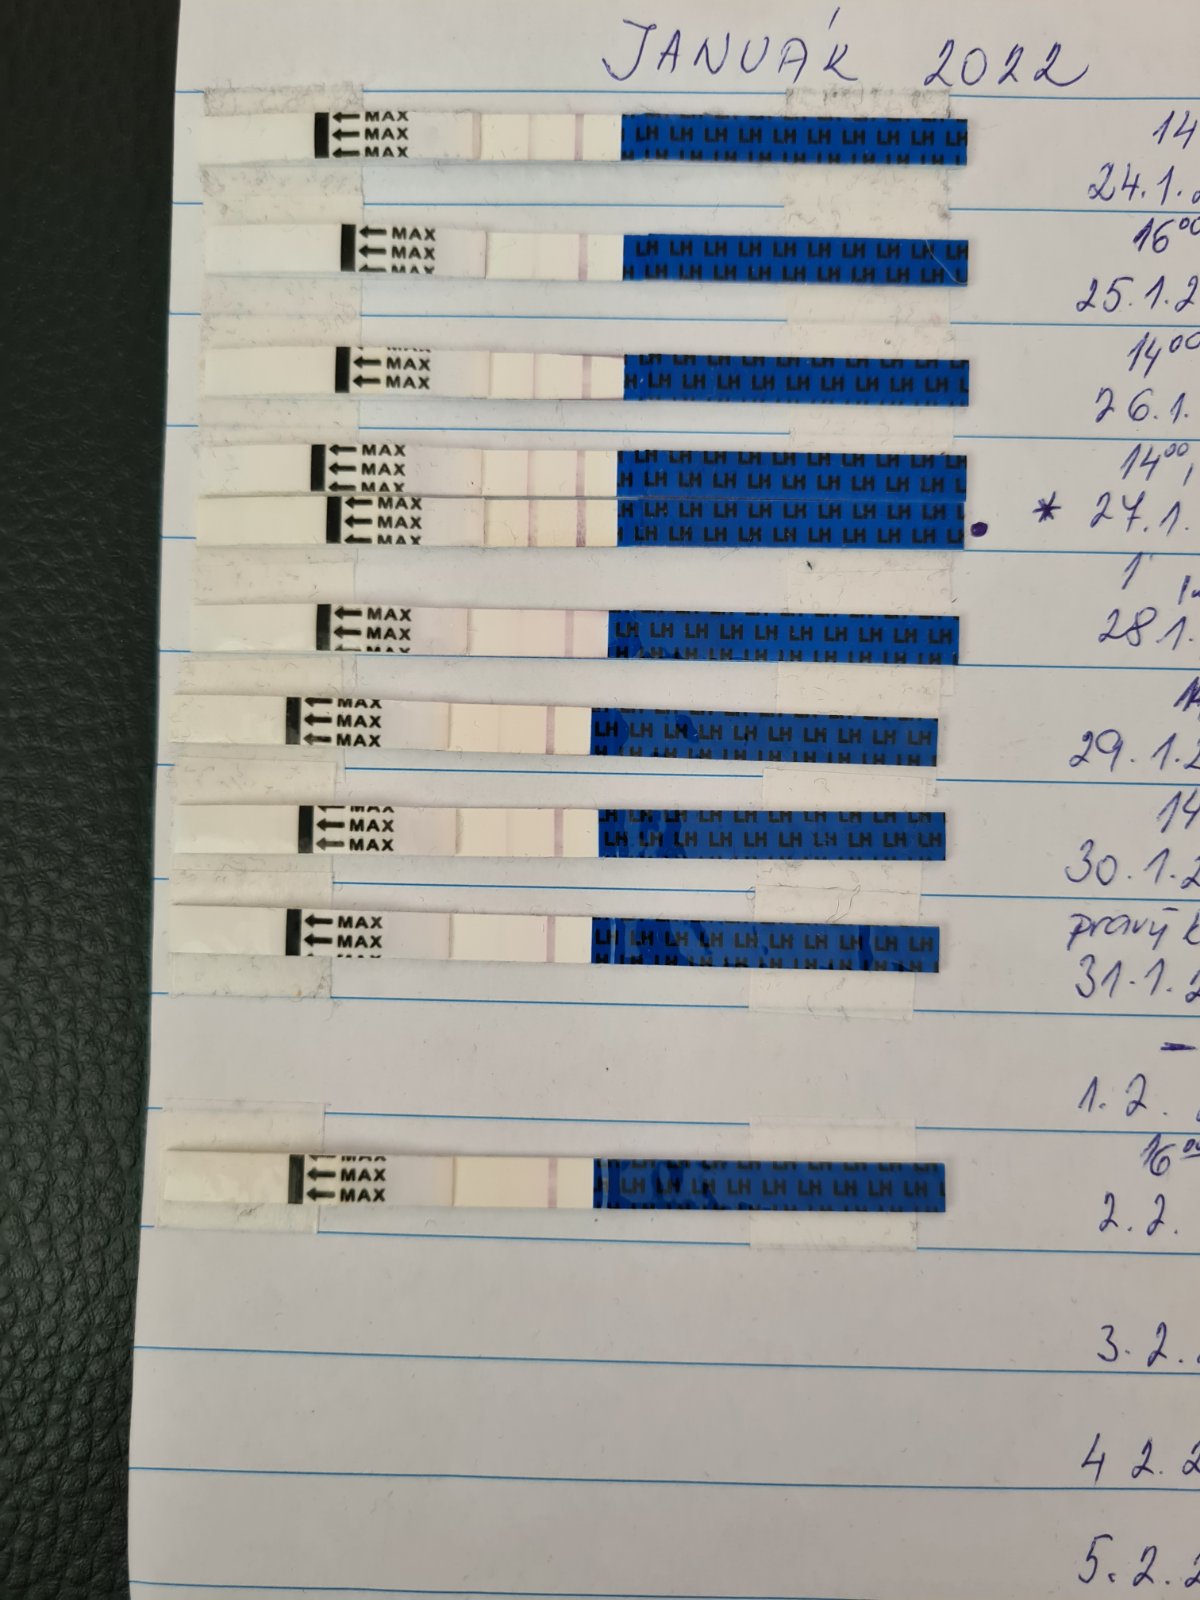 JANUÁR 2022
← MAX
← MAX
← MAX
LH LH LH LH LH LH LH LH
14
24.1.2
← MAX
← MAX
← MAX
LH LH LH LH LH LH LH LH LH
16⁰⁰
25.1.2
← MAX
← MAX
LH LH LH LH LH LH LH LH LH
14⁰⁰
26.1.
← MAX
← MAX
← MAX
LH LH LH LH LH LH LH LH LH
14⁰⁰,
← MAX
← MAX
← MAX
LH LH LH LH LH LH LH LH LH
* 27.1.
← MAX
← MAX
LH LH LH LH LH LH LH LH LH
28.1.
← MAX
← MAX
← MAX
LH LH LH LH LH LH LH LH LH
29.1.2
← MAX
← MAX
← MAX
LH LH LH LH LH LH LH LH LH
14
30.1.2
← MAX
← MAX
LH LH LH LH LH LH LH LH LH
pravý
31.1.2
-
1.2.
← MAX
← MAX
← MAX
LH LH LH LH LH LH LH LH LH
16⁰⁰
2.2.
3.2.
4 2.2
5.2.2